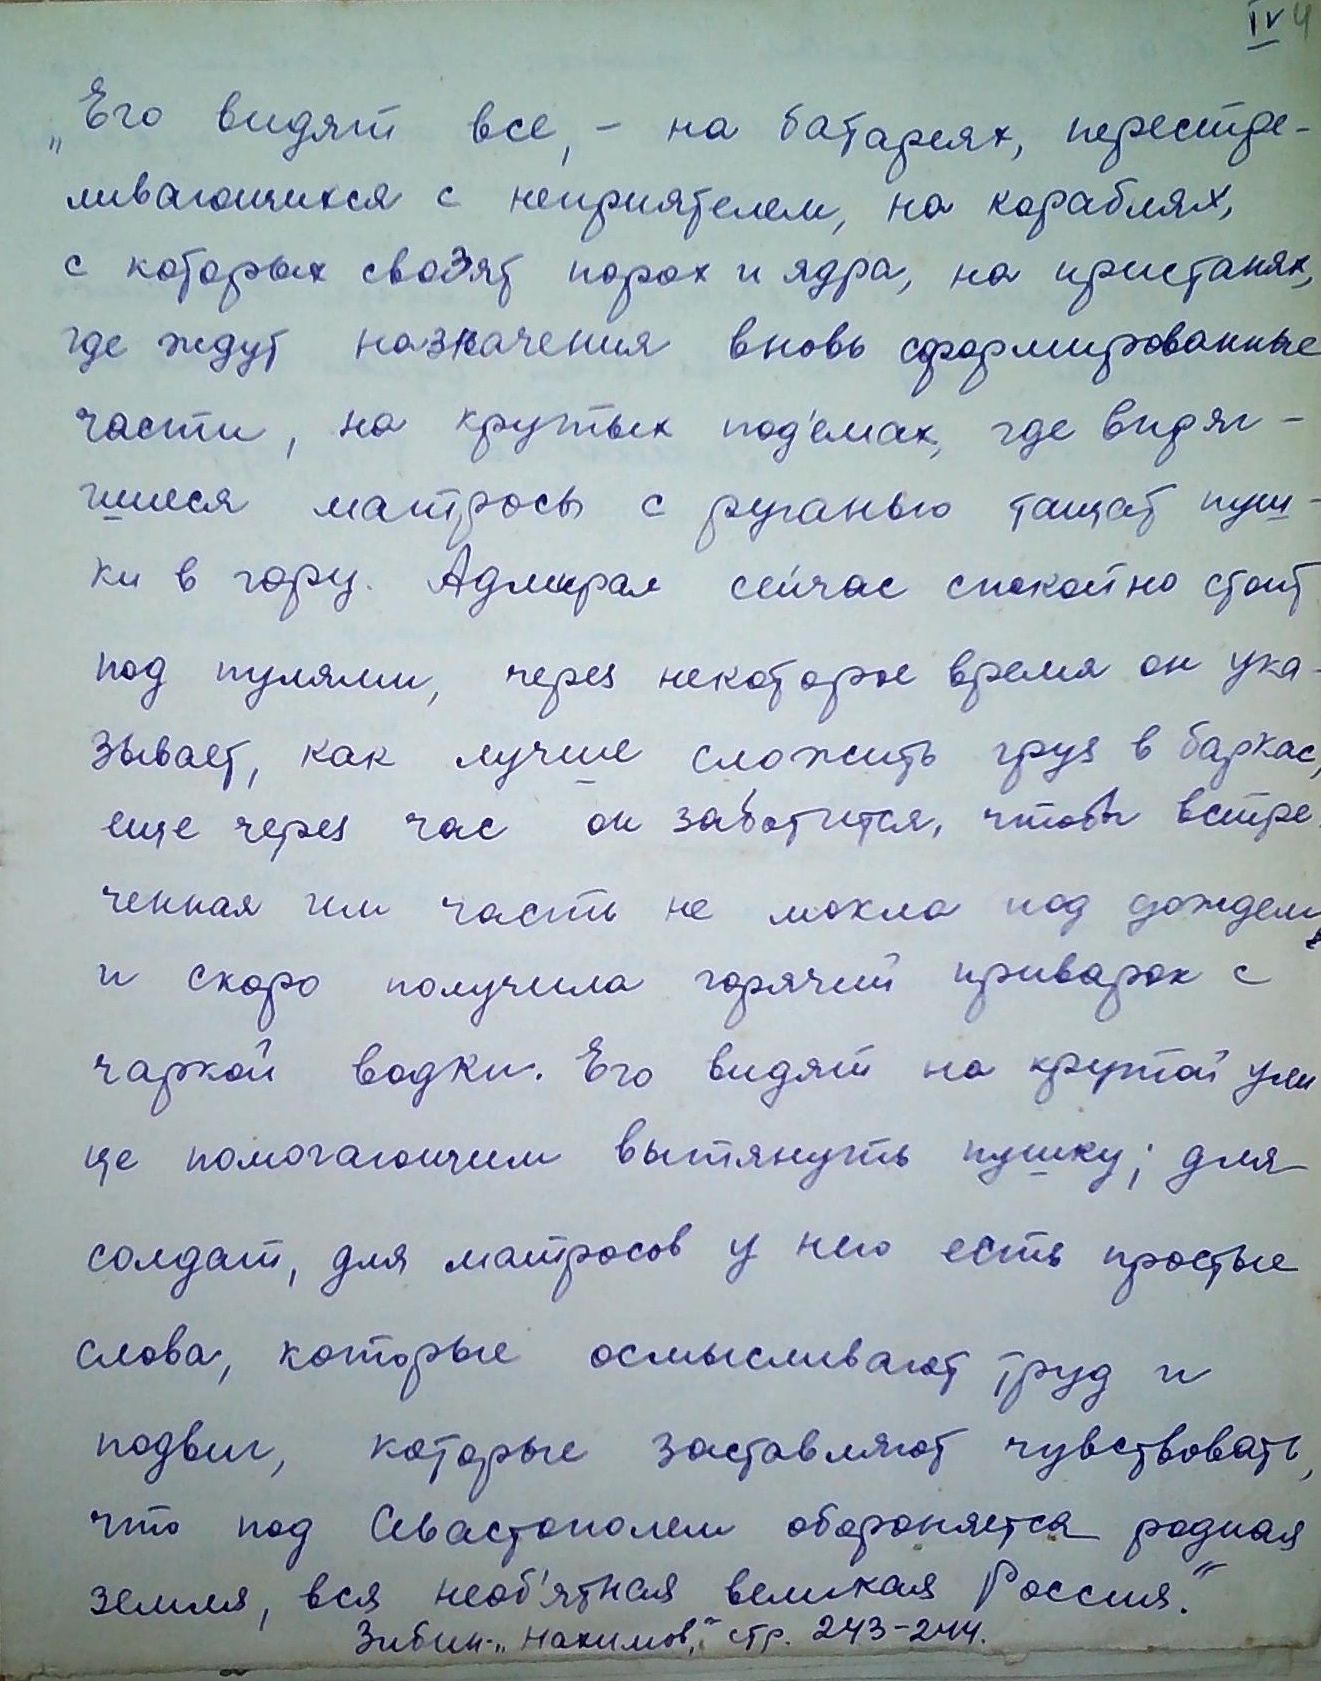 IV 4
„Его видят все, – на батареях, перестре-
ливающихся с неприятелем, на кораблях,
с которых свозят порох и ядра, на пристанях,
где ждут назначения вновь сформированные
части, на крутых под'емах, где впряг-
шиеся матросы с руганью тащат пуш-
ки в гору. Адмирал сейчас спокойно стоит
под пулями, через некоторое время он ука-
зывает, как лучше сложить груз в баркас,
еще через час он заботится, чтобы встре-
ченная им часть не мокла под дождем,
и скоро получила горячий приварок с
чаркой водки. Его видят на крутой ули
це помогающим вытянуть пушку; для
солдат, для матросов у него есть простые
слова, которые осмысливают труд и
подвиг, которые заставляют чувствовать,
что под Севастополем обороняется родная
земля, вся необ'ятная великая Россия."
Зибин-„Нахимов," стр. 243-244.